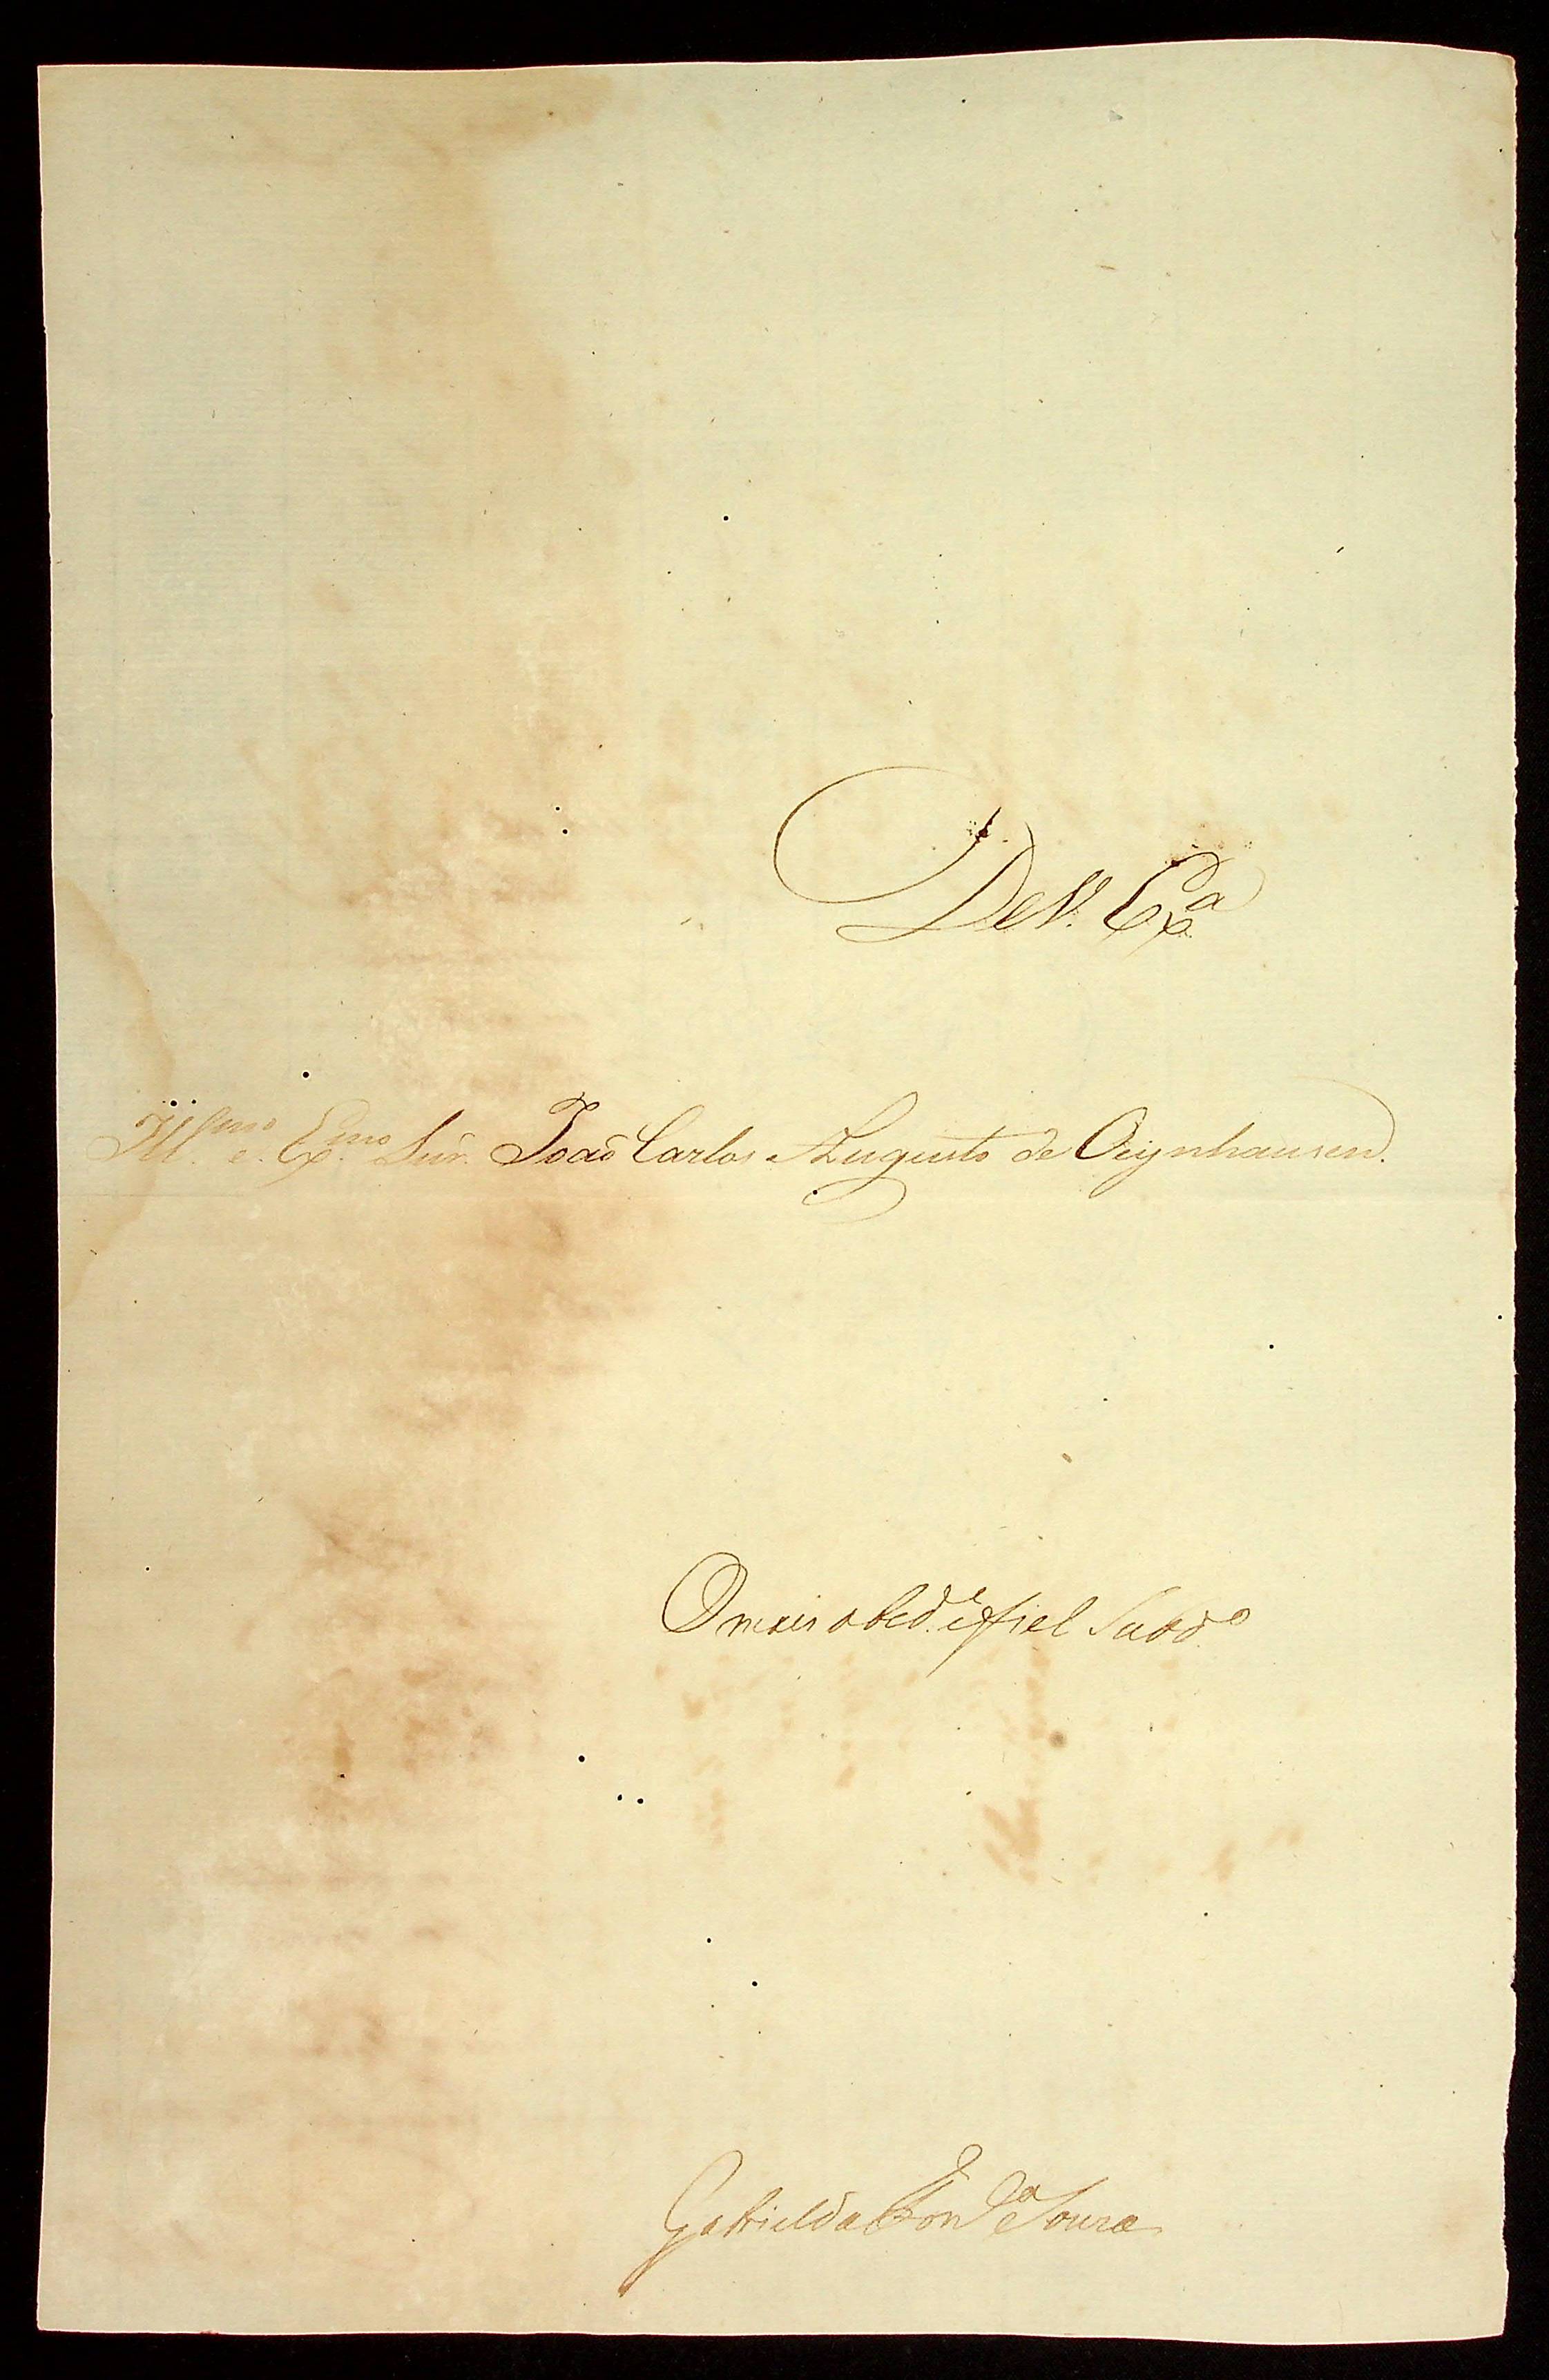 De V. Ex.ª
Ill.mo e Ex.mo Snr. João Carlos Augusto de Oeynhausen.
O mais obed.e e fiel Subd.o
Gabriel da Fon.ca e Souza